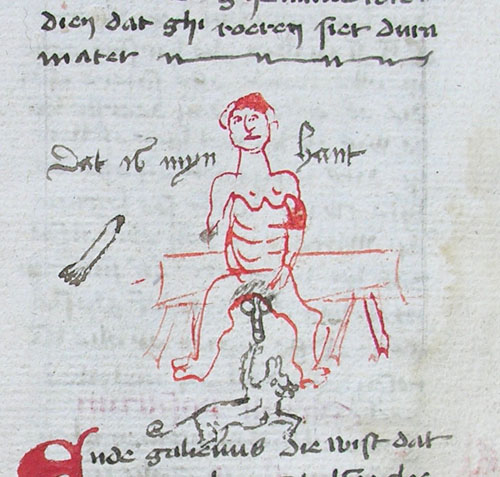 dien dat ghi roeren siet dura
mater
Dat is myn hant
Ende galienus die wist dat